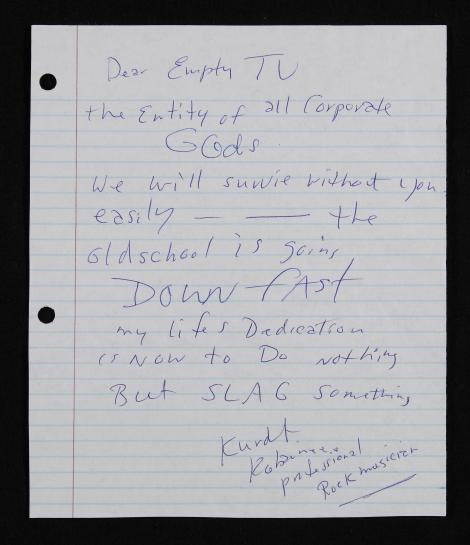 Dear Empty TV
the Entity of all Corporate
GODs
We will survie without you
easily — — the
oldschool is going
DOWN FAST
my life's Dedication
is NOW to Do nothing
But SLAG something
Kurdt
professional
Rock musician